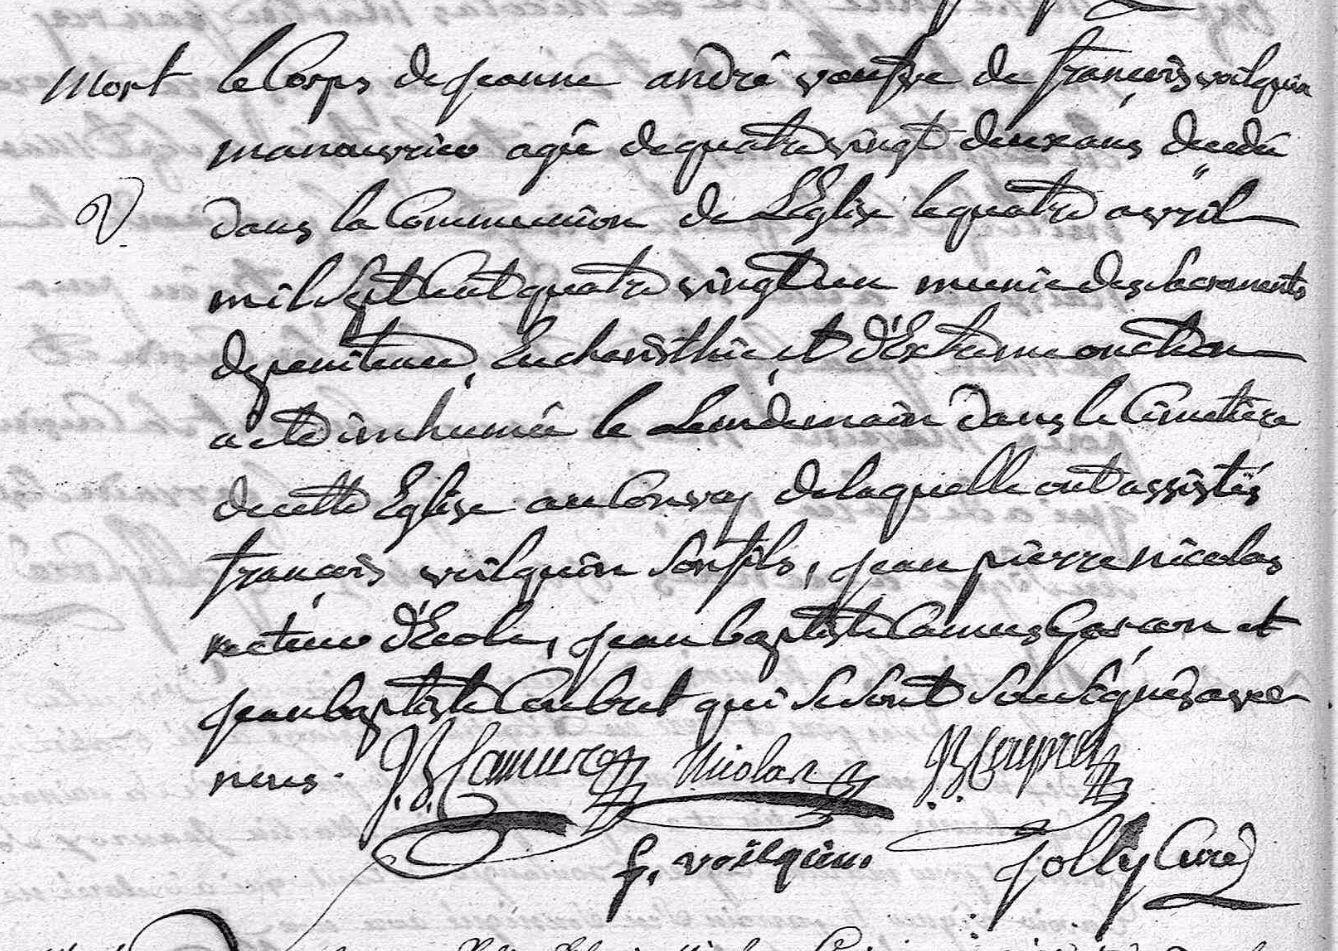 mort le Corps de jeanne andré veufve de françois voilquin
manouvrier agée de quatre vingt deux ans decedée
dans la Communion de L'Eglise le quatre avril
mil sept Cent quatre vingt un munie des sacrements
de penitence, Eucharisthie, et d'Extreme onction
a eté inhumée le Lendemain dans le Cimetière
de cette Eglise au Convoy de laquelle ont assistés
françois voilquin son fils, jean pierre nicolas
recteur d'Ecole, jean baptiste Camus Garçon et
jean baptiste qui se sont soussignés avec
nous. J.B. Camus Nicolas J.B.
f. voilquin. Jolly Curé